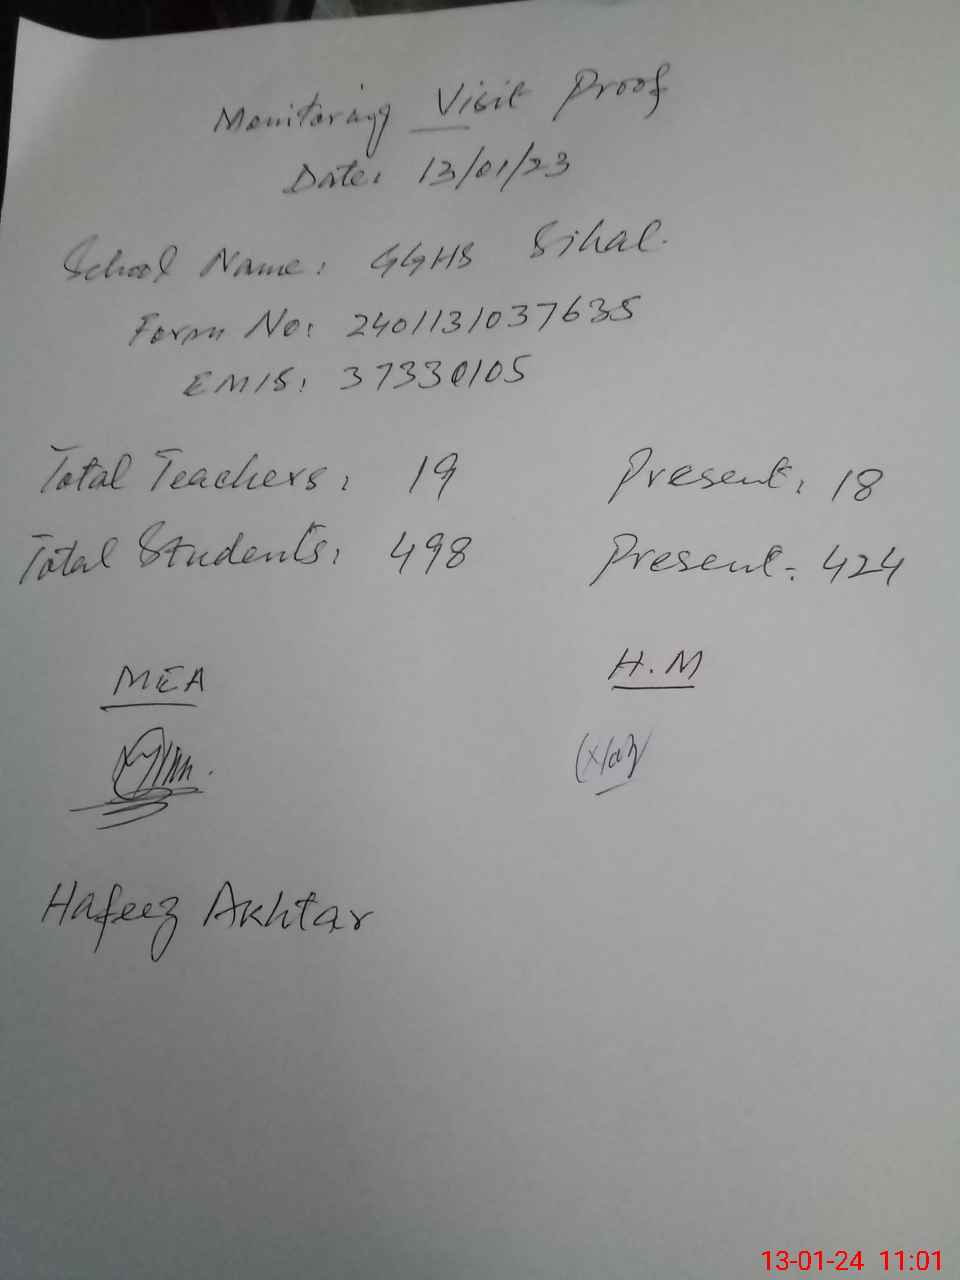 Monitoring Visit Proof
Date: 13/01/23
School Name: GGHS Sihal.
Form No: 2401131037635
EMIS: 37330105
Total Teachers: 19 Present: 18
Total Students: 498 Present: 424
MEA H.M
Hafeez Akhtar
13-01-24 11:01